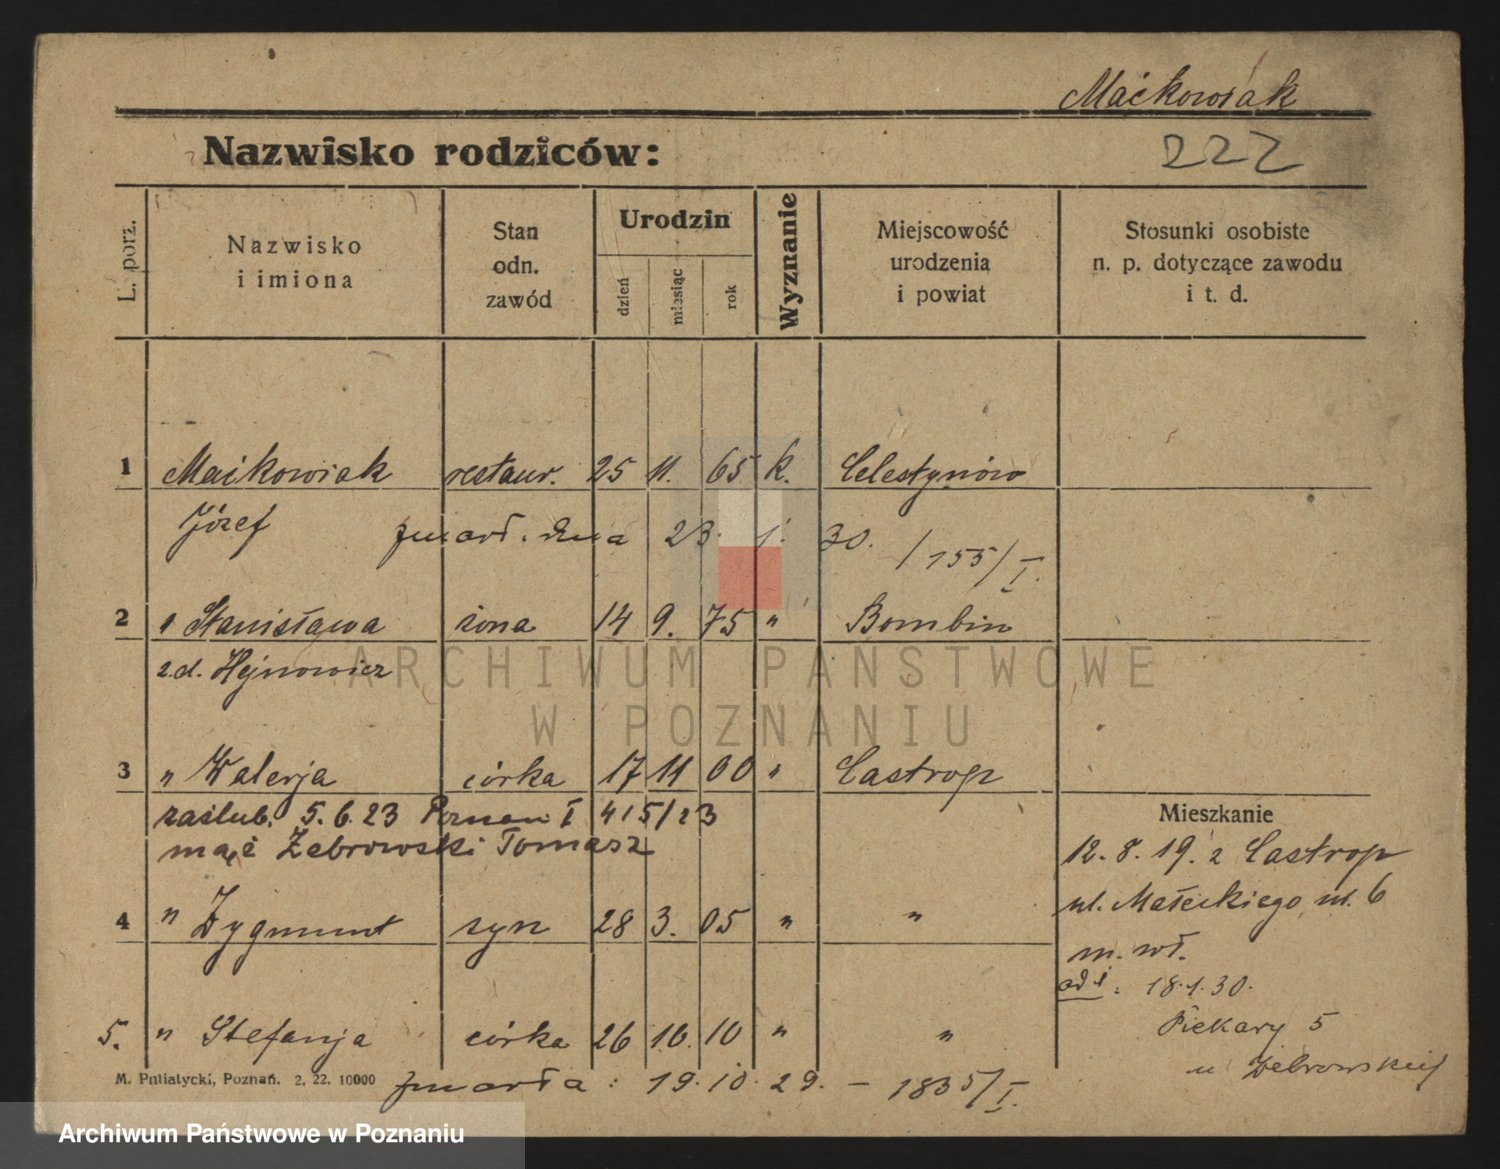 Maćkowiak
Nazwisko rodziców:
222
L. porz.
Nazwisko
i imiona
Stan
odn.
zawód
Urodzin
dzień
miesiąc
rok
Wyznanie
Miejscowość
urodzenia
i powiat
Stosunki osobiste
n. p. dotyczące zawodu
i t. d.
1 Maćkowiak restaur. 25 11. 65 k. Celestynów
Józef zmarł. dnia 23. 1. 30. /155/I.
2 " Stanisława żona 14 9. 75 " Bombin
z.d. Hejnowicz
ARCHIWUM PAŃSTWOWE
W POZNANIU
3 " Walerja córka 17 11 00 " Castrop
zaślub. 5.6.23 Poznań I 415/23
mąż Żebrowski Tomasz
4 " Zygmunt syn 28 3. 05 " "
5. " Stefanja córka 26 10. 10 " "
Mieszkanie
12. 8. 19. z Castrop
ul. Małeckiego nr. 6
m. wł.
od : 18.1.30.
Piekary 5
u Żebrowskiej
M. Putiatycki, Poznań. 2. 22. 10000
zmarła : 19. 10. 29. – 1835/I.
Archiwum Państwowe w Poznaniu